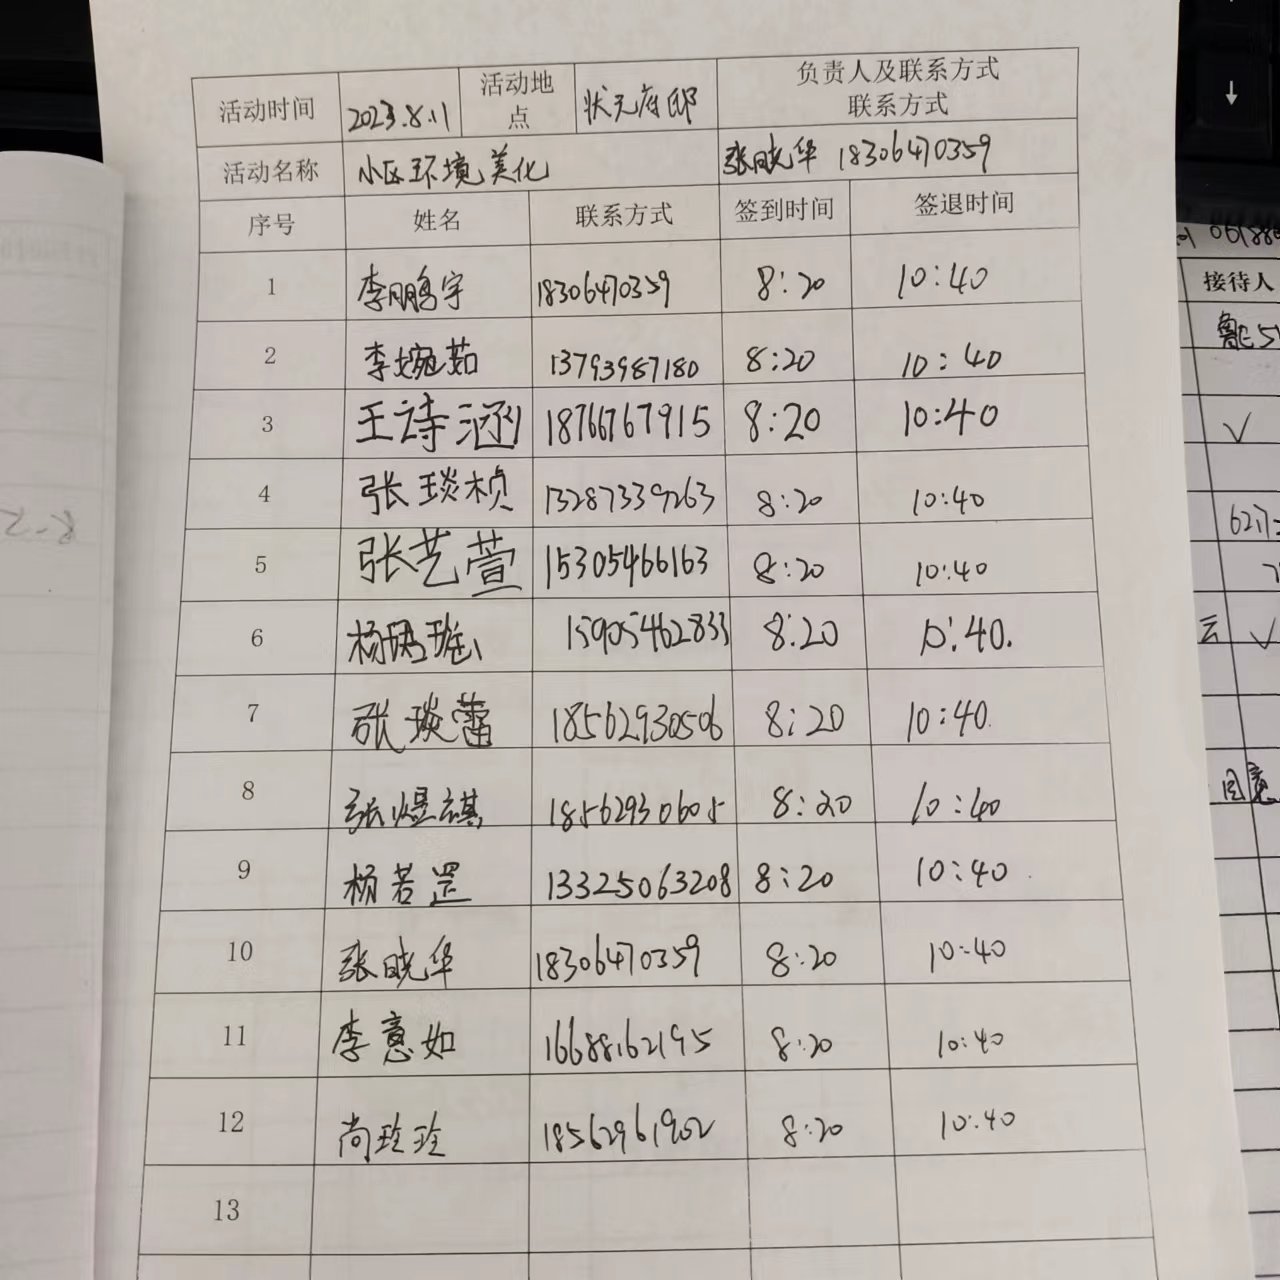 活动时间 2023.8.11 活动地点 状元府邸 负责人及联系方式
联系方式
活动名称 小区环境美化 张晓华 18306470359
序号 姓名 联系方式 签到时间 签退时间
1 李鹏宇 18306470359 8:20 10:40
2 李婉茹 13793987180 8:20 10:40
3 王诗涵 18766767915 8:20 10:40
4 张琰桢 13287339263 8:20 10:40
5 张艺萱 15305466163 8:20 10:40
6 杨珺瑶 15905462833 8:20 10:40.
7 张琰蕾 18562930506 8:20 10:40.
8 张煜祺 18562930605 8:20 10:40
9 杨若罡 13325063208 8:20 10:40
10 张晓华 18306470359 8:20 10:40
11 李意如 16688162195 8:20 10:40
12 尚玲玲 18562961902 8:20 10:40
13
接待人